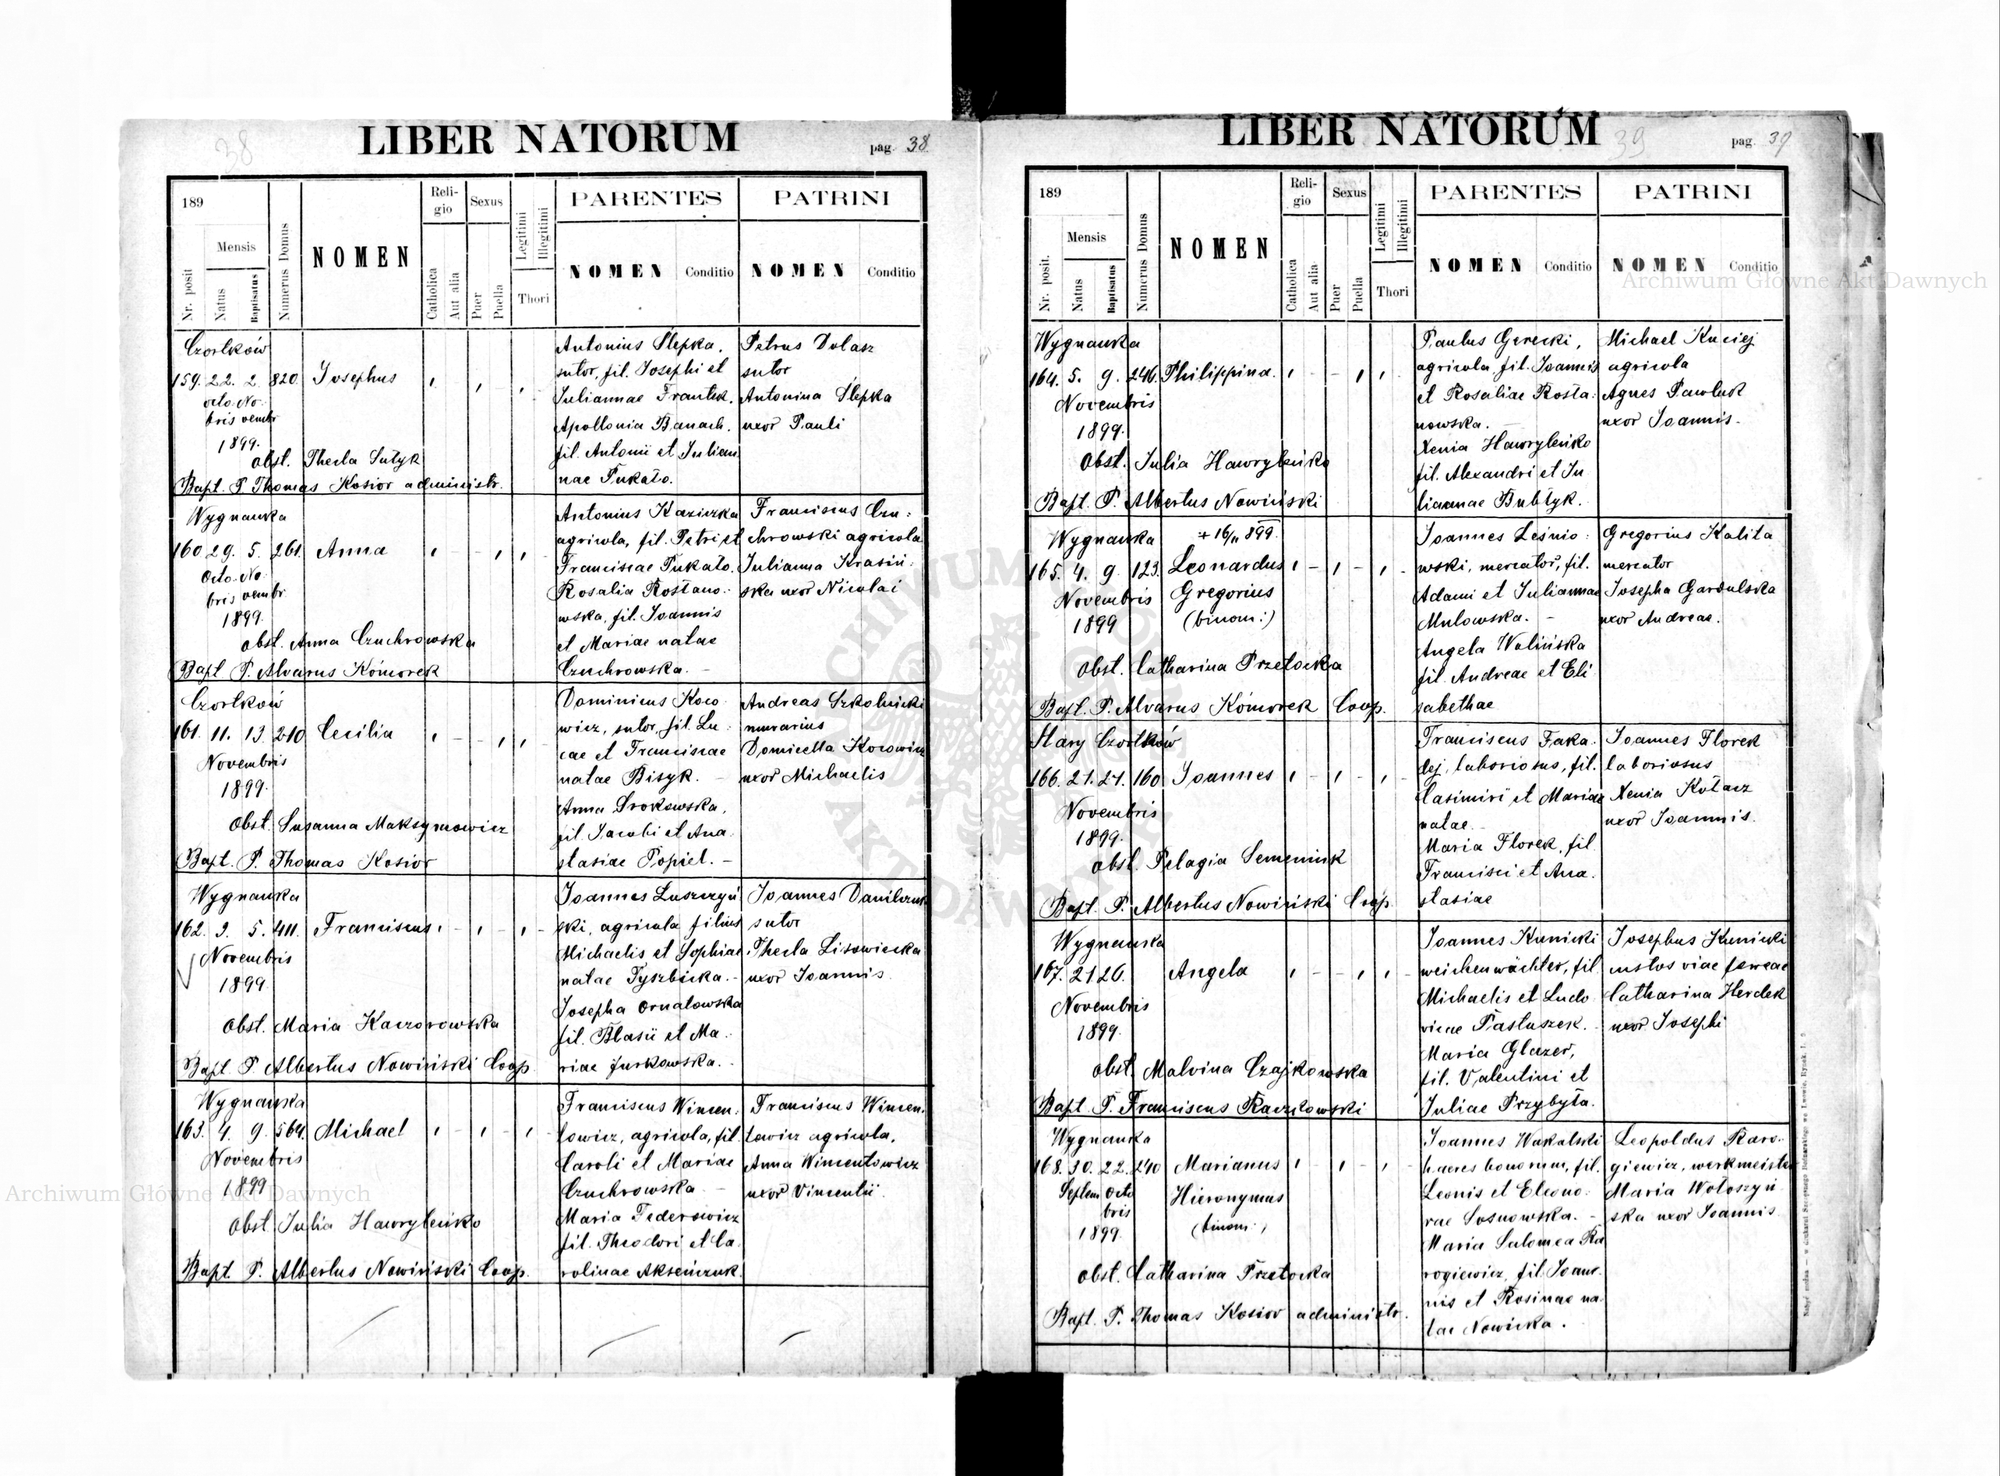 38
LIBER NATORUM
pag. 38.
189
Nr. posit
Mensis
Natus
Baptisatus
Numerus Domus
NOMEN
Religio
Catholica
Aut alia
Sexus
Puer
Puella
Legitimi
Illegitimi
Thori
PARENTES
NOMEN
Conditio
PATRINI
NOMEN
Conditio
Czortków
159. 22. 2. 820. Josephus
octo- No-
bris vembr
1899.
obst. Thecla Sutyk
Bapt. P. Thomas Kosior administr.
Antonius Slepka,
sutor, fil. Josephi et
Juliannae Frantek.
Apollonia Banach,
fil. Antonii et Julian
nae Pukało.
Petrus Dolasz
sutor
Antonina Slepka
uxor Pauli
Wygnanka
160. 29. 5. 261. Anna
Octo- No-
bris vembr
1899.
obst. Anna Czuchrowska
Bapt P. Alvarus Komorek
Antonius Kaziczka
agricola, fil. Petri et
Franciscae Pukało.
Rosalia Rostano-
wska, fil. Joannis
et Mariae natae
Czuchrowska. -
Franciscus Czu-
chrowski agricola
Julianna Krasiń-
ska uxor Nicolai
Czortków
161. 11. 13. 210 Cecilia
Novembris
1899.
obst. Susanna Maksymowicz
Bapt. P. Thomas Kosior
Dominicus Koco
wicz, sutor, fil. Lu-
cae et Franciscae
natae Bisyk. -
Anna Srokowska,
fil. Jacobi et Ana-
stasiae Popiel. -
Andreas Szkolnicki
murarius
Domicella Kocowicz
uxor Michaelis
Wygnanka
162. 3. 5. 411. Franciscus
Novembris
1899.
Obst. Maria Kaczorowska
Bapt. P. Albertus Nowiński Coop.
Joannes Luszczyń
ski, agricola filius
Michaelis et Sophiae
natae Tyszbicka. -
Josepha Ornatowska
fil. Blasii et Ma-
riae Jurkowska. -
Joannes Danilczuk
sutor
Thecla Lisowiecka
uxor Joannis
Wygnanka
163. 4. 9. 564. Michael
Novembris
1899
Obst. Julia Hawryleńko
Bapt. P. Albertus Nowiński Coop.
Franciscus Wincen-
towicz, agricola, fil.
Caroli et Mariae
Czuchrowska -
Maria Federowicz
fil. Theodori et Ca-
rolinae Akseńczuk.
Franciscus Wincen-
towicz agricola,
Anna Wincentowicz
uxor Vincentii
LIBER NATORUM
39
pag. 39
189
Nr. posit.
Mensis
Natus
Baptisatus
Numerus Domus
NOMEN
Religio
Catholica
Aut alia
Sexus
Puer
Puella
Legitimi
Illegitimi
Thori
PARENTES
NOMEN
Conditio
PATRINI
NOMEN
Conditio
Wygnanka
164. 5. 9. 246. Philippina.
Novembris
1899.
Obst. Julia Hawryleńko
Bapt. P. Albertus Nowiński
Paulus Gerecki,
agricola, fil. Joannis
et Rosaliae Rosta-
nowska. -
Xenia Hawryleńko
fil. Alexandri et Ju
liannae Bubłyk.
Michael Kuciej
agricola
Agnes Pawluk
uxor Joannis.
Wygnanka + 16/11 899.
165. 4. 9. 123. Leonardus
Novembris Gregorius
1899 (binom:)
Obst. Catharina Przetocka
Bapt. P. Alvarus Komorek Coop.
Joannes Leśnio-
wski, mercator, fil.
Adami et Juliannae
Mulowska. -
Angela Walińska
fil. Andreae et Eli
sabethae
Gregorius Kalita
mercator
Josepha Gardulska
uxor Andreae.
Stary Czortków
166. 21. 21. 160. Joannes
Novembris
1899.
Obst. Pelagia Semeniuk
Bapt. P. Albertus Nowiński Coop.
Franciscus Faka-
dej, laboriosus, fil.
Casimiri et Mariae
natae. -
Maria Florek, fil.
Francisci et Ana-
stasiae
Joannes Florek
laboriosus
Xenia Kołacz
uxor Joannis.
Wygnanka
167. 21 26. Angela
Novembris
1899.
Obst. Malvina Czajkowska
Bapt. P. Franciscus Raczkowski
Joannes Kunicki
weichenwächter, fil.
Michaelis et Ludo
vicae Pastuszek. -
Maria Glazer,
fil. Valentini et
Juliae Przybyła.
Josephus Kunicki
custos viae ferreae
Catharina Herdek
uxor Josephi
Wygnanka
168. 30. 22. 240 Marianus
Septem Octo Hieronymus
bris (binom:)
1899.
Obst. Catharina Przetocka
Bapt. P. Thomas Kosior administr.
Joannes Wakalski
haeres bonorum, fil.
Leonis et Eleono-
rae Sosnowska. -
Maria Salomea Ka
rogiewicz, fil. Joan-
nis et Rosinae na-
tae Nowicka.
Leopoldus Karo-
giewicz, werkmeister
Maria Wołoszyń-
ska uxor Joannis
Archiwum Główne Akt Dawnych
Archiwum Główne Akt Dawnych
ARCHIWUM GŁÓWNE AKT DAWNYCH